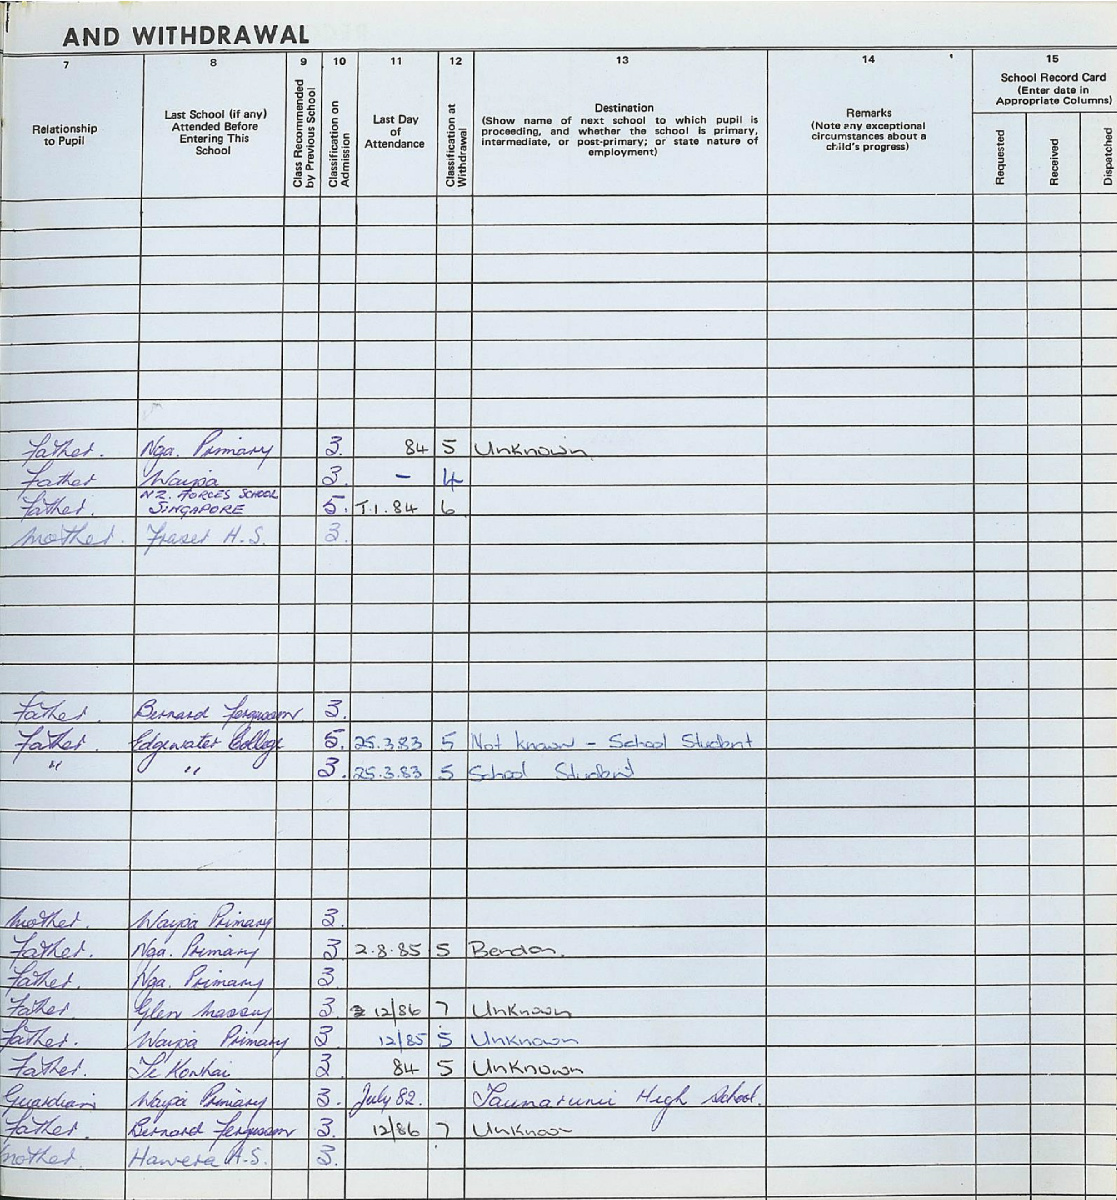 AND WITHDRAWAL
7 8 9 10 11 12 13 14 15
Relationship to Pupil
Last School (if any) Attended Before Entering This School
Class Recommended by Previous School
Classification on Admission
Last Day of Attendance
Classification at Withdrawal
Destination
(Show name of next school to which pupil is proceeding, and whether the school is primary, intermediate, or post-primary; or state nature of employment)
Remarks
(Note any exceptional circumstances about a child's progress)
School Record Card
(Enter date in Appropriate Columns)
Requested
Received
Dispatched
Father. Nga. Primary 3. 84 5 Unknown
Father Waipa 3. – 4
Father. NZ. FORCES SCHOOL SINGAPORE 5. T.1.84 6
Mother. Fraser H.S. 3.
Father. Bernard Fergusson 3.
Father. Edgewater College 5. 25.3.83 5 Not known – School Student
" " 3. 25.3.83 5 School Student
Mother. Waipa Primary 3.
Father. Nga. Primary 3 2.8.85 5
Father. Nga. Primary 3
Father. Glen Massey 3. 12/86 7 Unknown
Father. Waipa Primary 3. 12/85 5 Unknown
Father. Te Kowhai 3. 84 5 Unknown
Guardian Waipa Primary 3. July 82. Taumarunui High School.
Father. Bernard Fergusson 3. 12/86 7 Unknown
Mother. Hawera H.S. 3.